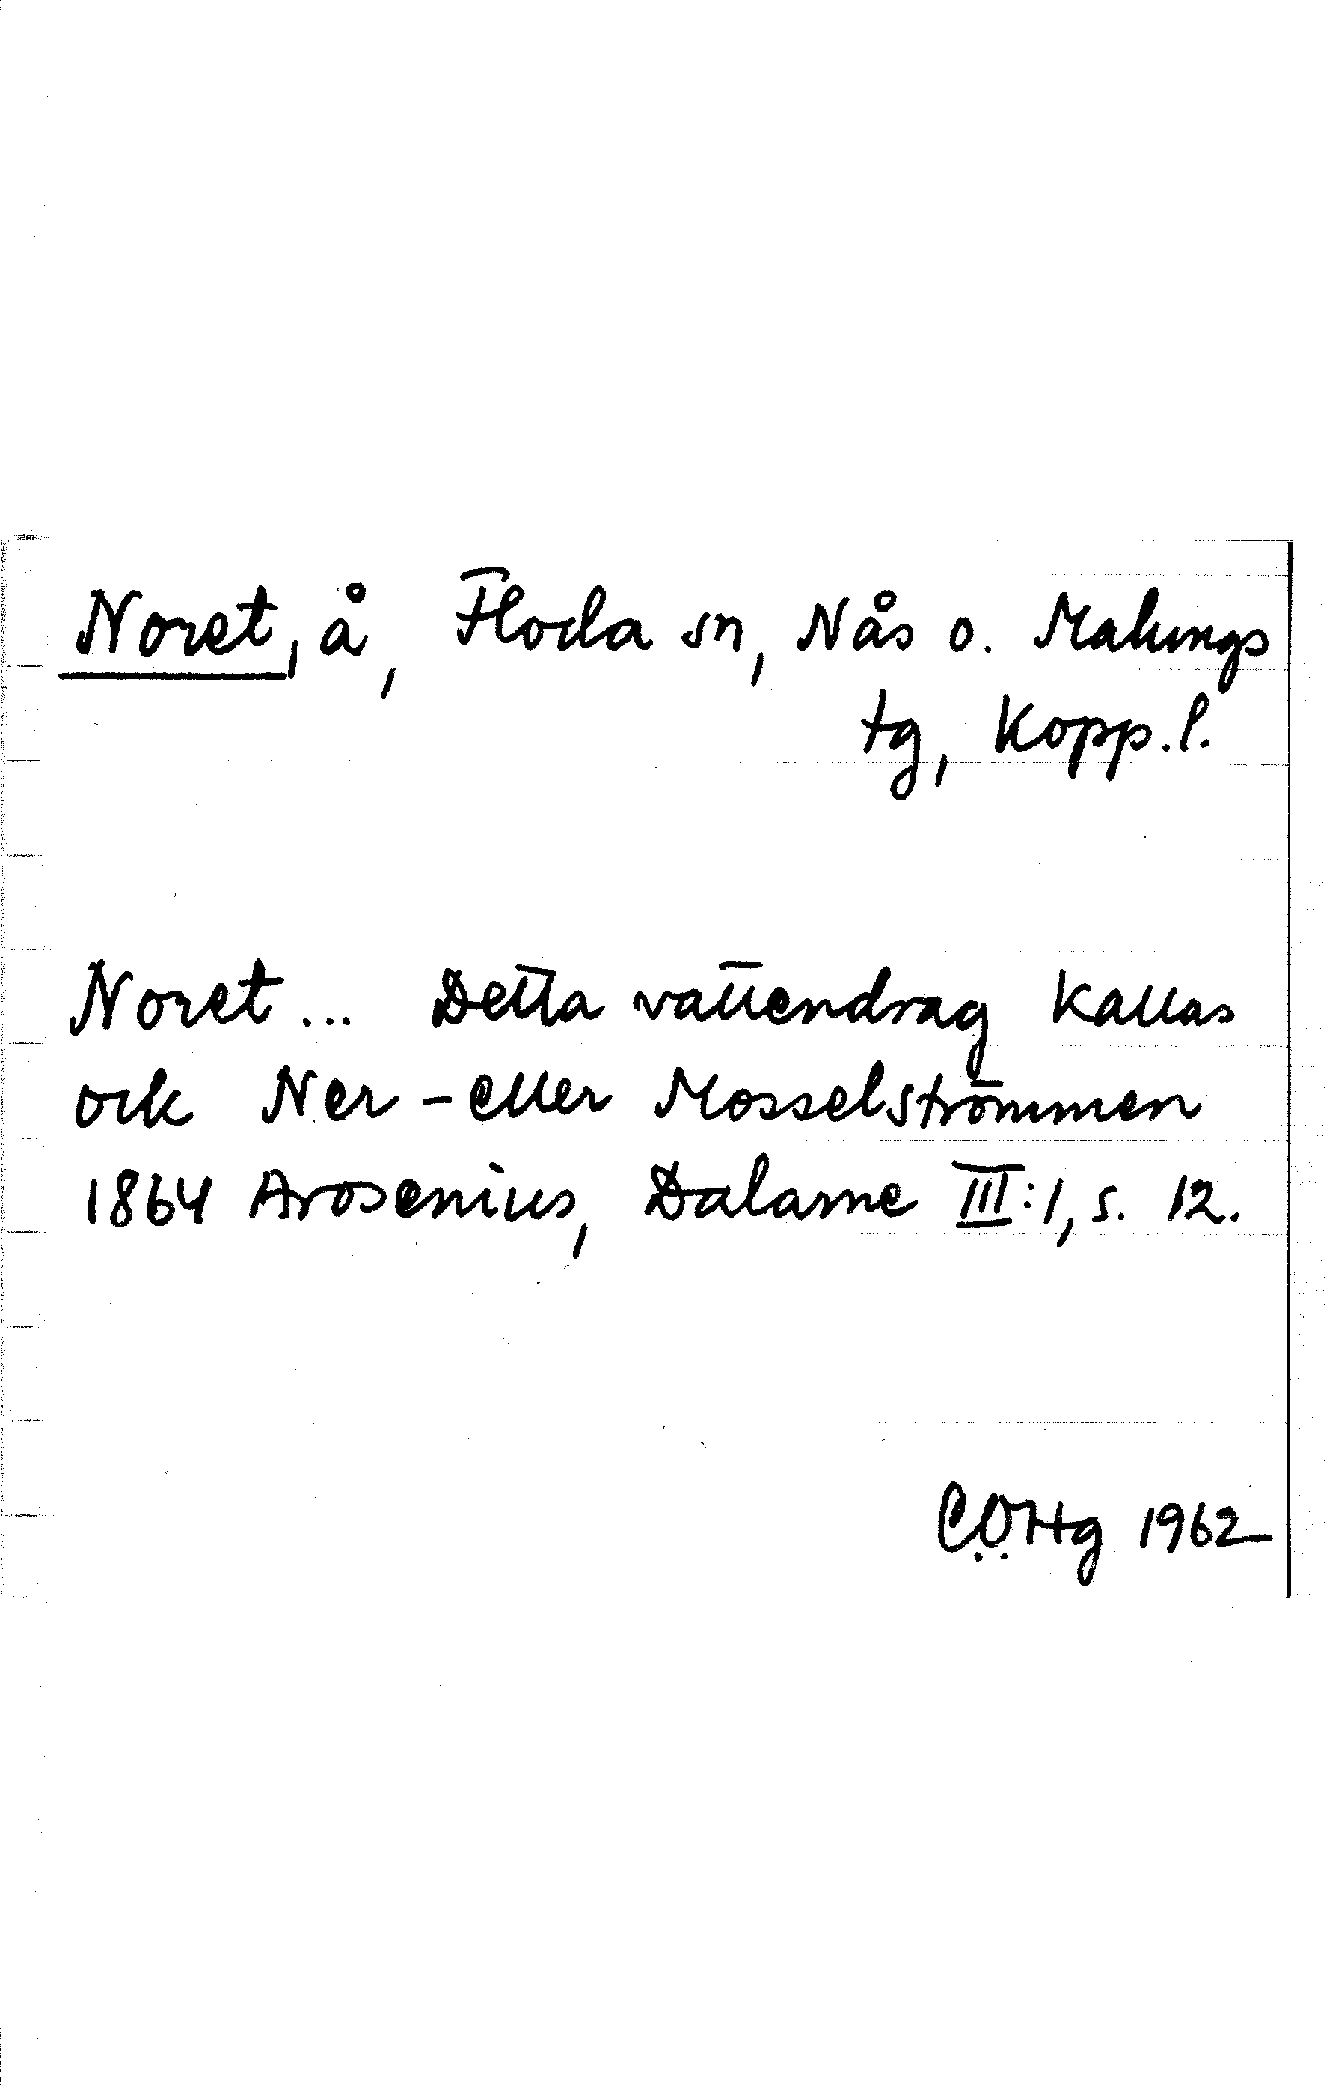 Noret, å, Floda sn, Nås o. Malungs
tg, Kopp. l.
Noret ... Detta vattendrag kallas
ock Ner- eller Mosselströmmen
1864 Arosenius, Dalarne III:1, s. 12.
C.Ö.Hg 1962